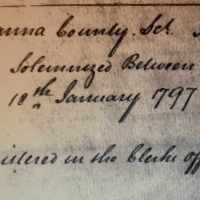 anna County. Sct.
Solemnized Between
18th January 797
istered in the Clerks off